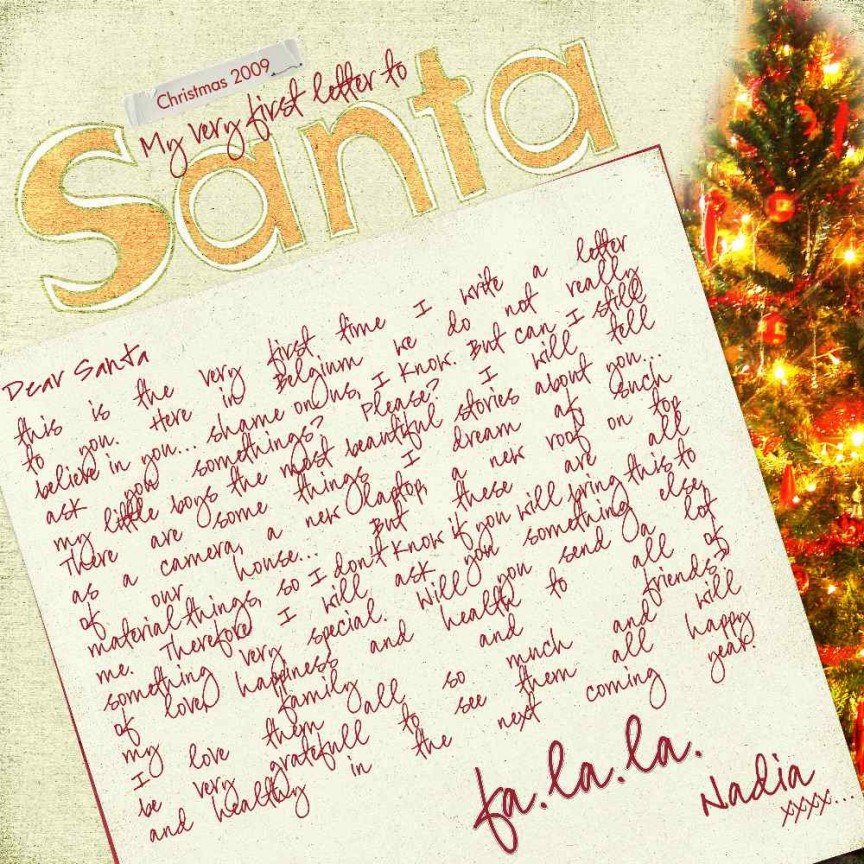 Christmas 2009
My very first letter to
Santa
Dear Santa
this is the very first time I write a letter
to you. Here in Belgium we do not really
believe in you... shame on us, I know. But can I still
ask you somethings? Please? I will tell
my little boys the most beautiful stories about you...
There are some things I dream of such
as a camera, a new laptop, a new roof on top
of our house... But these are all
material things, so I don't know if you will bring this to
me. Therefore I will ask you something else,
something very special. Will you send a lot
of love, happiness and health to all of
my family and friends?
I love them all so much and will
be very gratefull to see them all happy
and healthy in the next coming year.
fa.la.la.
Nadia
xxxx...